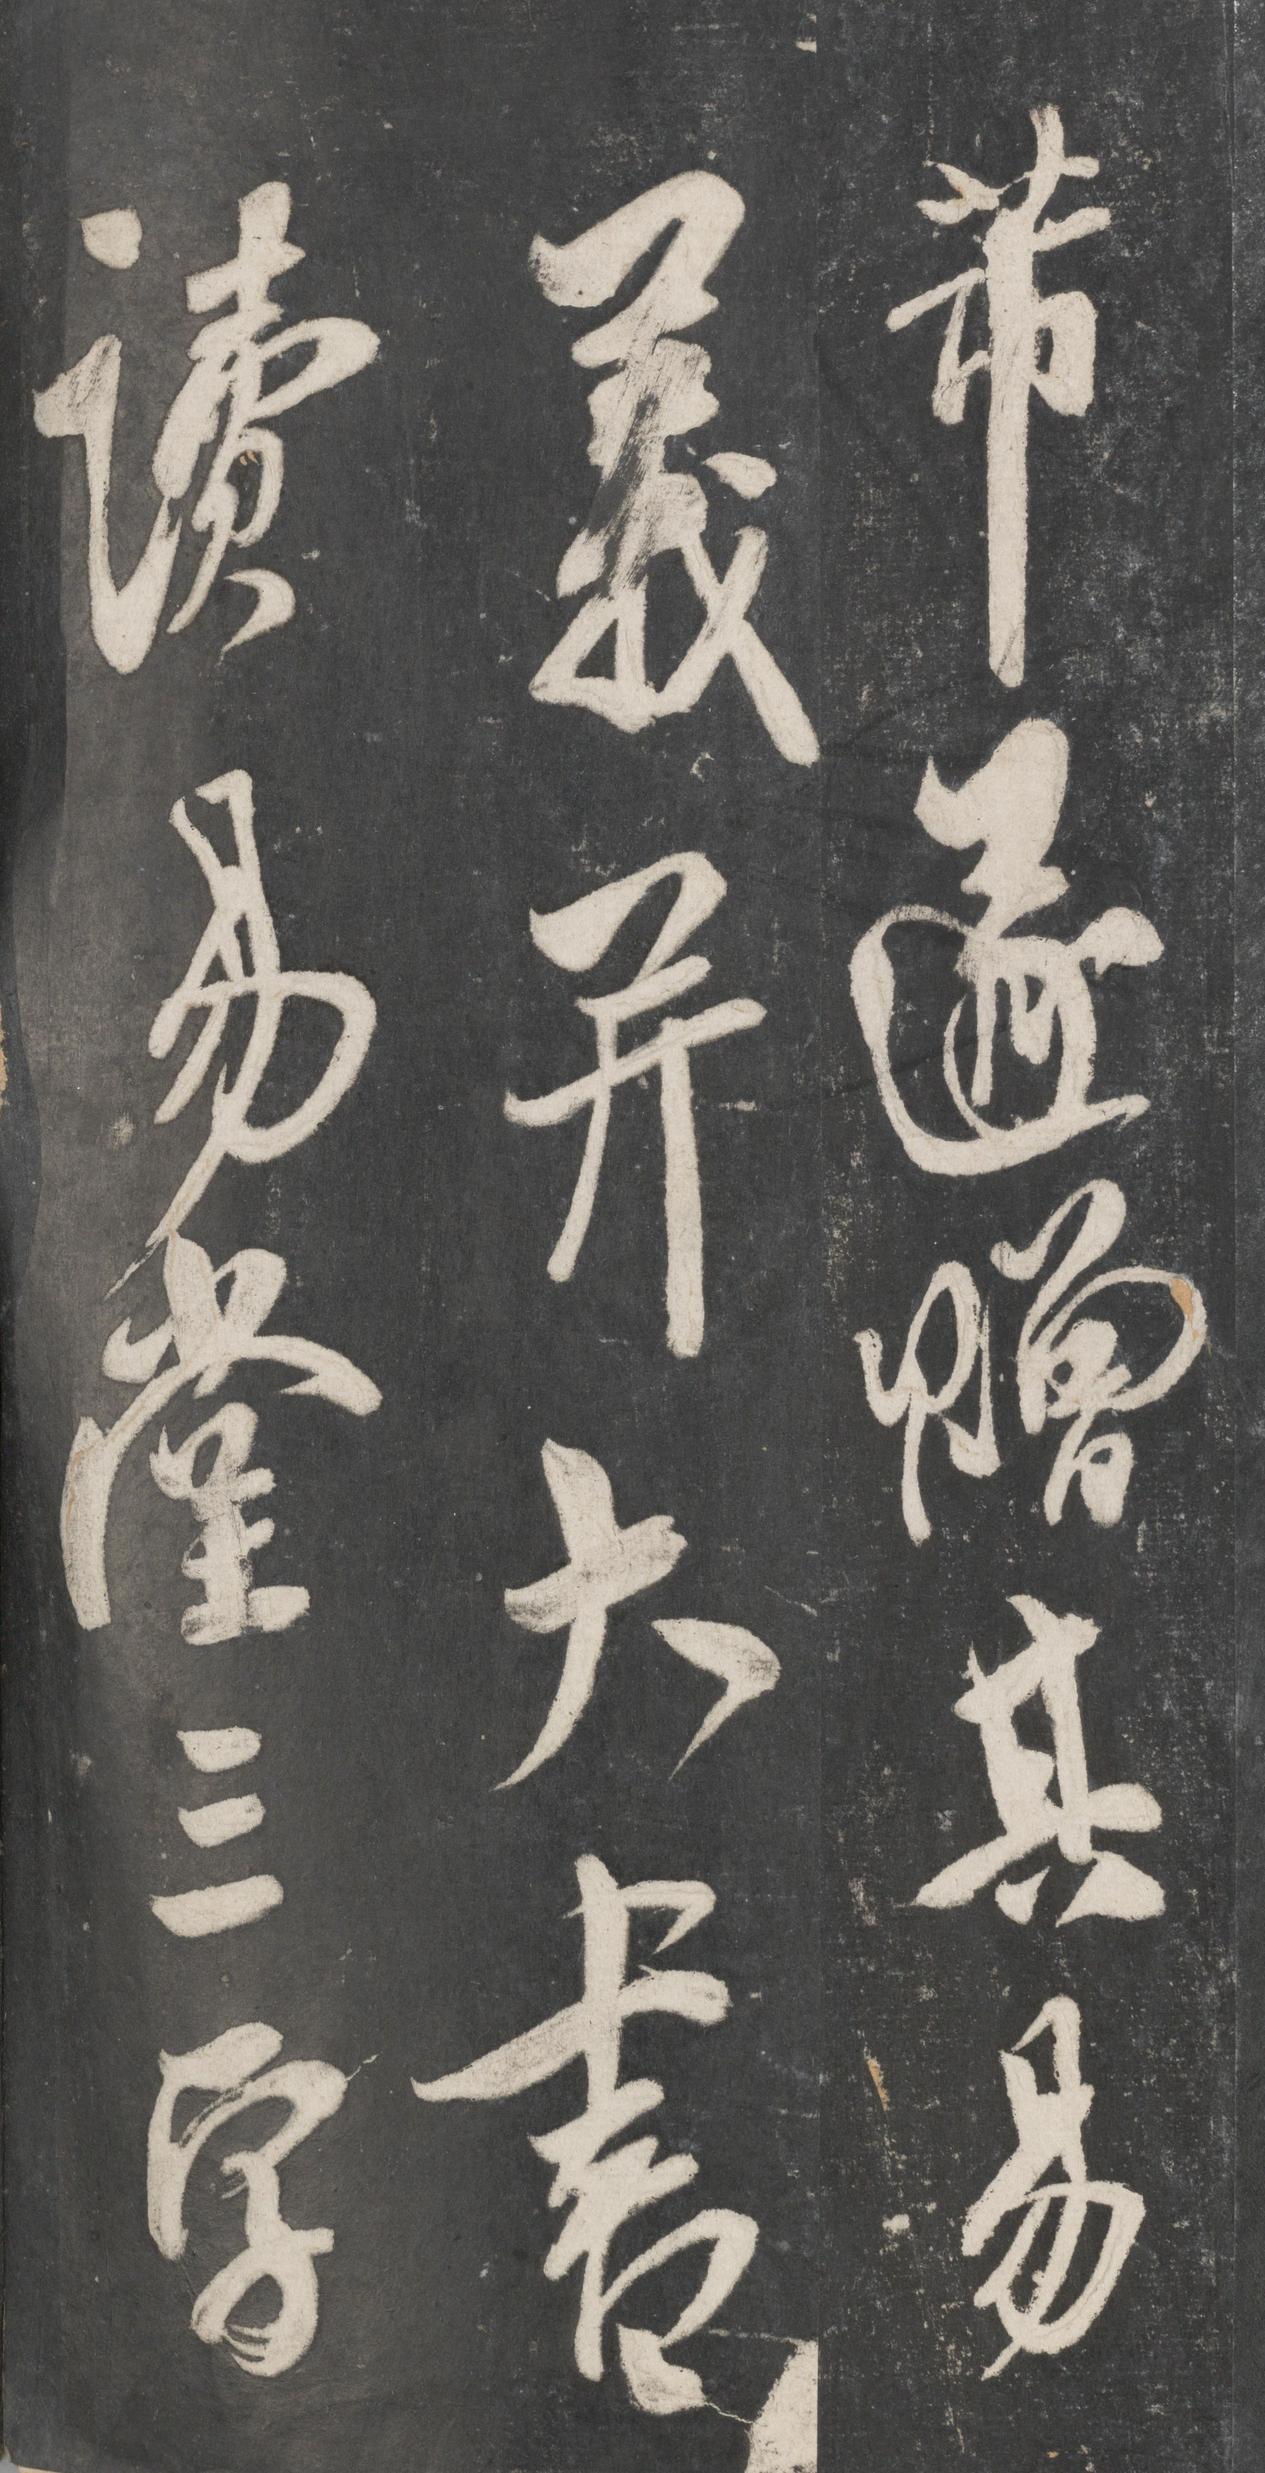 芾遂贈其易
義并大書
讀易堂三字